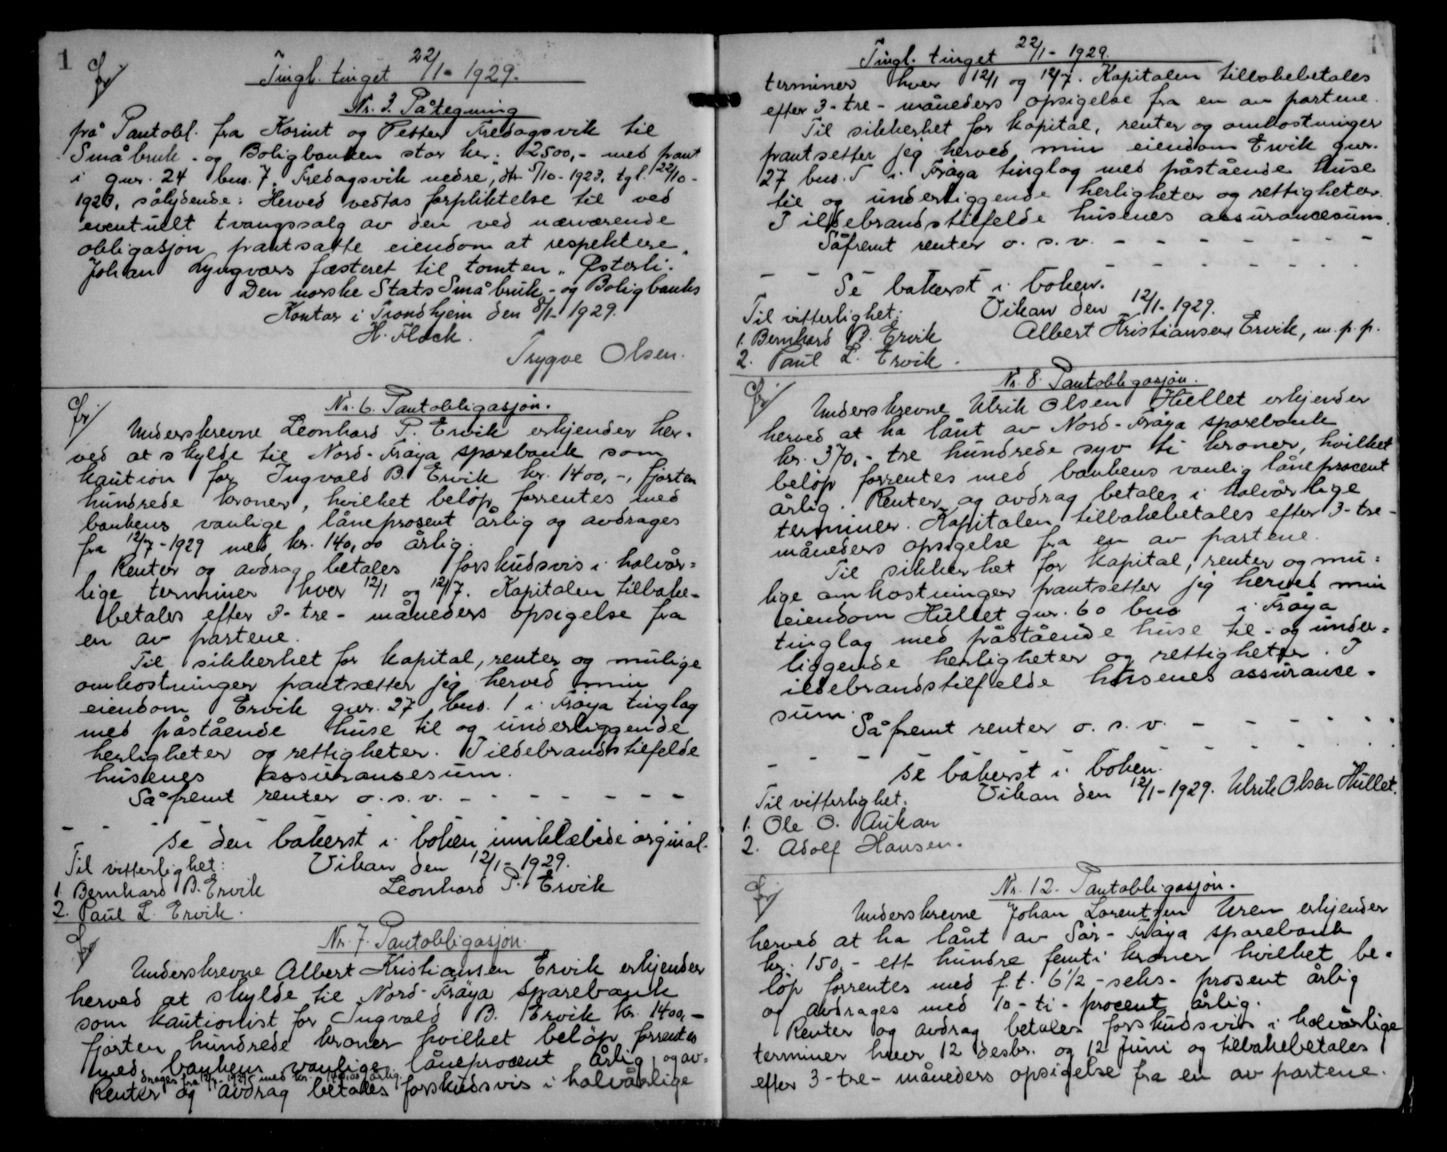 1
Tingl. tinget 22/1-1929.
Nr. 3. Påtegning
på Pantobl. fra Korint og Petter Fredagsvik til
Småbruk- og Boligbanken stor kr. 2500,- med pant
i gnr. 24 bno. 7. Fredagsvik nedre, dtr. 5/10-1923, tgl. 22/10-
1923, sålydende: Herved vedtas forpliktelse til ved
eventuelt tvangssalg av den ved nærværende
obligasjon pantsatte eiendom at respektere
Johan Lyngværs fæsteret til tomten „Østerli."
Den norske Stats Småbruk- og Boligbanks
Kontor i Trondhjem den 8/1-1929.
H. Flack.
Trygve Olsen.
Nr. 6. Pantobligasjon.
Underskrevne Leonhard P. Ervik erkjender her-
ved at skylde til Nord-Frøya sparebank som
kaution for Ingvald B. Ervik kr. 1400,-, fjorten
hundrede kroner, hvilket beløp forrentes med
bankens vanlige låneprosent årlig og avdrages
fra 12/7-1929 med kr. 140,00 årlig.
Renter og avdrag betales forskudsvis i halvår-
lige terminer hver 12/1 og 12/7. Kapitalen tilbake-
betales efter 3-tre- måneders opsigelse fra
en av partene.
Til sikkerhet for kapital, renter og mulige
omkostninger pantsætter jeg herved min
eiendom Ervik gnr. 27, bno. 1 i Frøya tinglag
med påstående huse til og underliggende
herligheter og rettigheter. I ildebrandstilfelde
husenes assuransesum.
Såfremt renter o. s. v. - - - - - - -
- - se den bakerst i boken inniklæbede orginal.
Til vitterlighet: Vikan den 12/1-1929.
1. Bernhard B. Ervik Leonhard P. Ervik
2. Paul L. Ervik.
Nr. 7. Pantobligasjon.
Underskrevne Albert Kristiansen Ervik erkjender
herved at skylde til Nord-Frøya sparebank
som kautionist for Ingvald B. Ervik kr. 1400,-
fjorten hundrede kroner hvilket beløp forrentes
med bankens vanlige låneprocent årlig og av-
drages fra 12/7-1929 med kr. 140,00 årlig.
Renter og avdrag betales forskudsvis i halvårlige
Tingl. tinget 22/1-1929.
terminer hver 12/1 og 12/7. Kapitalen tilbakebetales
efter 3-tre- måneders opsigelse fra en av partene.
Til sikkerhet for kapital, renter og omkostninger
pantsetter jeg herved min eiendom Ervik gnr.
27 bno. 5 i Frøya tinglag med påstående huse
til og underliggende herligheter og rettigheter.
I ildebrandstilfelde husenes assurancesum.
Såfremt renter o. s. v. - - - - - - -
- - Se bakerst i boken.
Til vitterlighet: Vikan den 12/1-1929.
1. Bernhard B. Ervik Albert Kristiansen Ervik, m. p. p.
2. Paul L. Ervik.
Nr. 8. Pantobligasjon.
Underskrevne Ulrik Olsen Hullet erkjender
herved at ha lånt av Nord-Frøya sparebank
kr. 370,- tre hundrede syv ti kroner, hvilket
beløp forrentes med bankens vanlig låneprocent
årlig. Renter og avdrag betales i halvårlige
terminer. Kapitalen tilbakebetales efter 3-tre-
måneders opsigelse fra en av partene.
Til sikkerhet for kapital, renter og mu-
lige omkostninger pantsetter jeg herved min
eiendom Hullet gnr. 60 bno i Frøya
tinglag med påstående huse til- og under-
liggende herligheter og rettigheter. I
ildebrandstilfelde husenes assurance-
sum.
Såfremt renter o. s. v. - - - - -
- - - se bakerst i boken.
Til vitterlighet. Vikan den 12/1-1929. Ulrik Olsen Hullet.
1. Ole O. Aukan
2. Adolf Hansen.
Nr. 12. Pantobligasjon.
Underskrevne Johan Lorentsen Uren erkjender
herved at ha lånt av Sør-Frøya sparebank
kr. 150,- ett hundre femti kroner hvilket be-
løp forrentes med f.t. 6 1/2 - seks- prosent årlig
og avdrages med 10-ti- procent årlig.
Renter og avdrag betales forskudsvis i halvårlige
terminer hver 12 desbr. og 12 juni og tilbakebetales
efter 3-tre- måneders opsigelse fra en av partene.